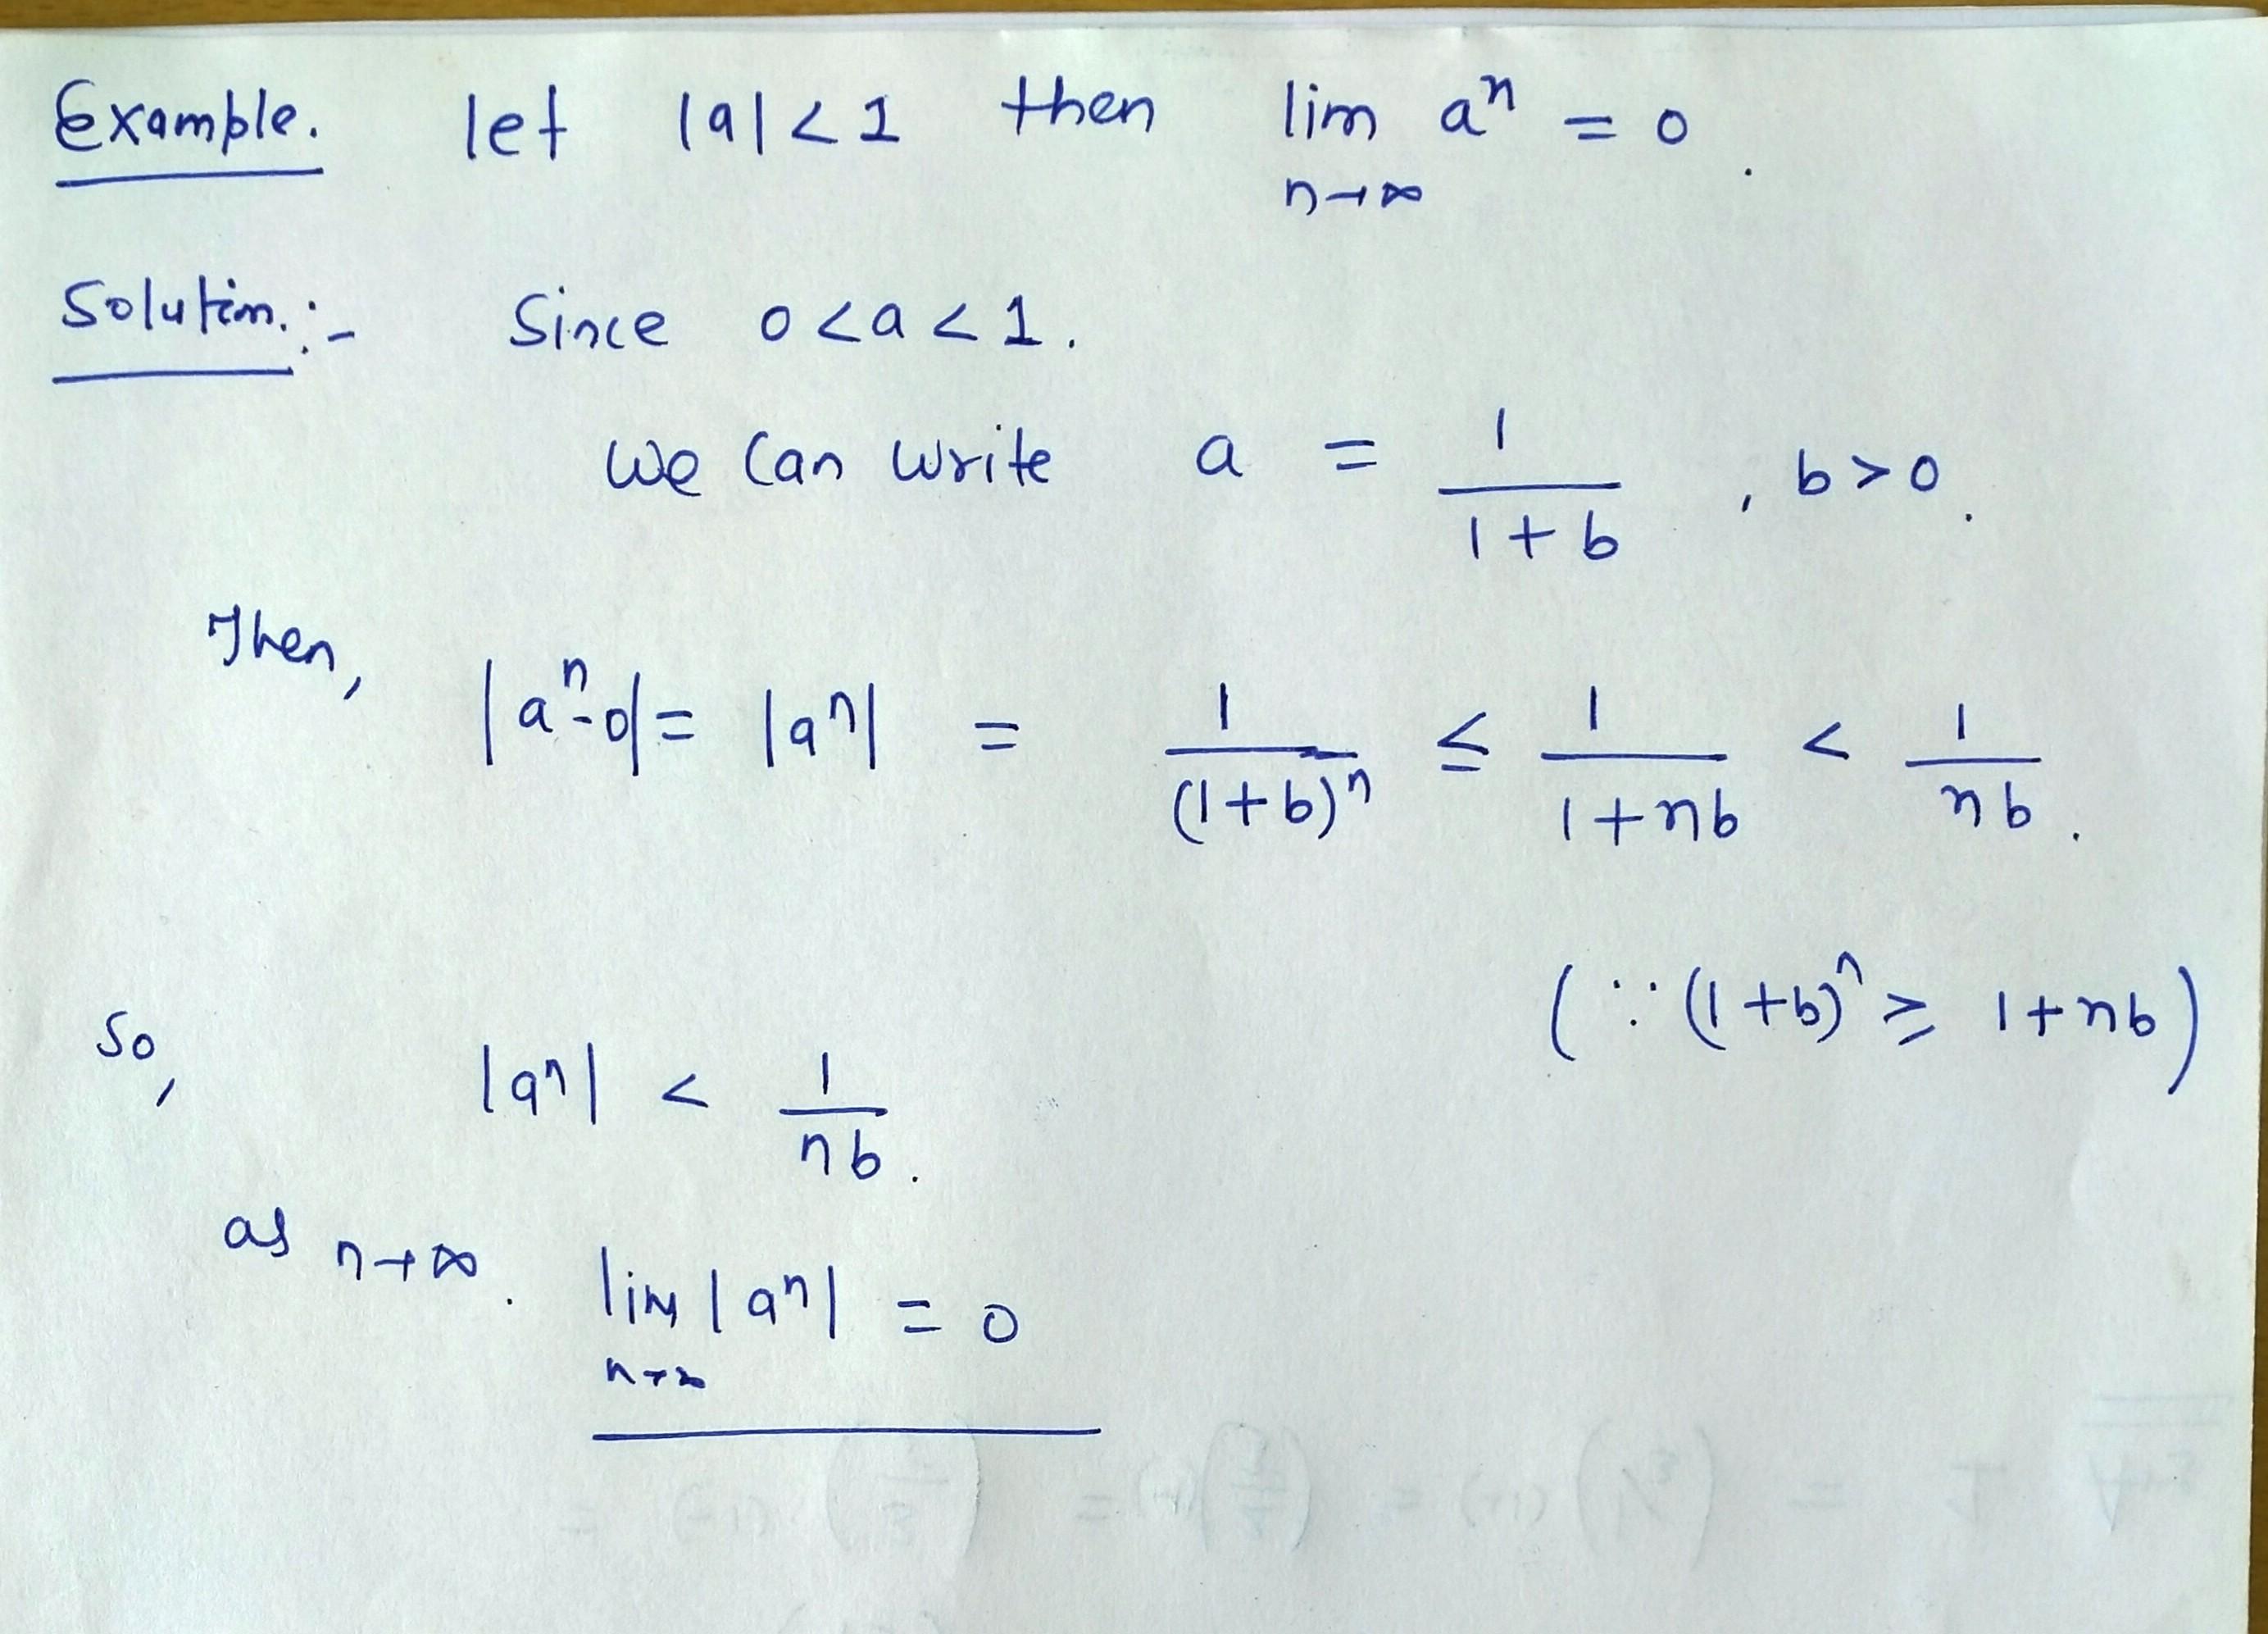 Example. let |a| < 1 then lim a^n = 0.
n→∞
Solution.:- Since 0 < a < 1.
We Can write a = 1/(1+b) , b > 0.
Then,
|a^n - 0| = |a^n| = 1/(1+b)^n ≤ 1/(1+nb) < 1/(nb).
(∵ (1+b)^n ≥ 1+nb)
So, |a^n| < 1/(nb).
as n→∞. lim |a^n| = 0
n→∞